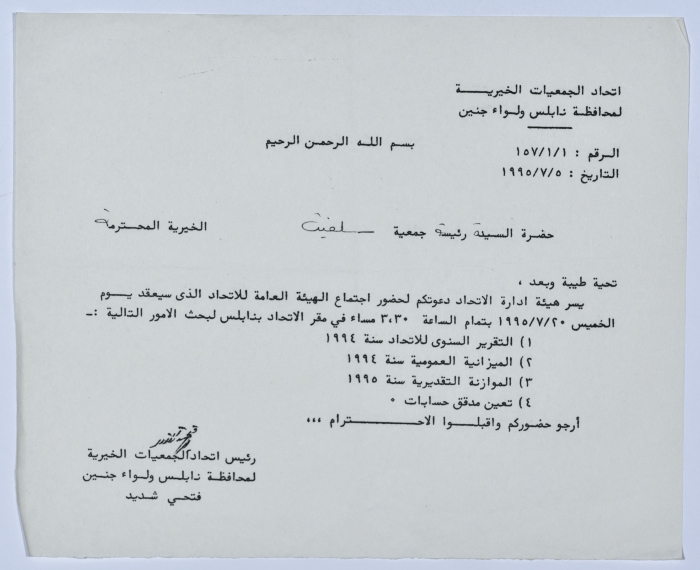 اتحاد الجمعيات الخيريـــة
لمحافظة نابلس ولواء جنين
بسم الله الرحمن الرحيم
الرقم : ١٥٧/١/١
التاريخ : ١٩٩٥/٧/٥
حضرة السيدة رئيسة جمعية سلفيت الخيرية المحترمة
تحية طيبة وبعد ،
يسر هيئة ادارة الاتحاد دعوتكم لحضور اجتماع الهيئة العامة للاتحاد الذى سيعقد يــوم
الخميس ١٩٩٥/٧/٢٠ بتمام الساعة ٣،٣٠ مساء في مقر الاتحاد بنابلس لبحث الامور التالية :ـ
١) التقرير السنوى للاتحاد سنة ١٩٩٤
٢) الميزانية العمومية سنة ١٩٩٤
٣) الموازنة التقديرية سنة ١٩٩٥
٤) تعين مدقق حسابات ٠
أرجو حضوركم واقبلــوا الاحـــــترام ،،،
رئيس اتحاد الجمعيات الخيرية
لمحافظة نابلس ولـواء جنـين
فتحي شديد